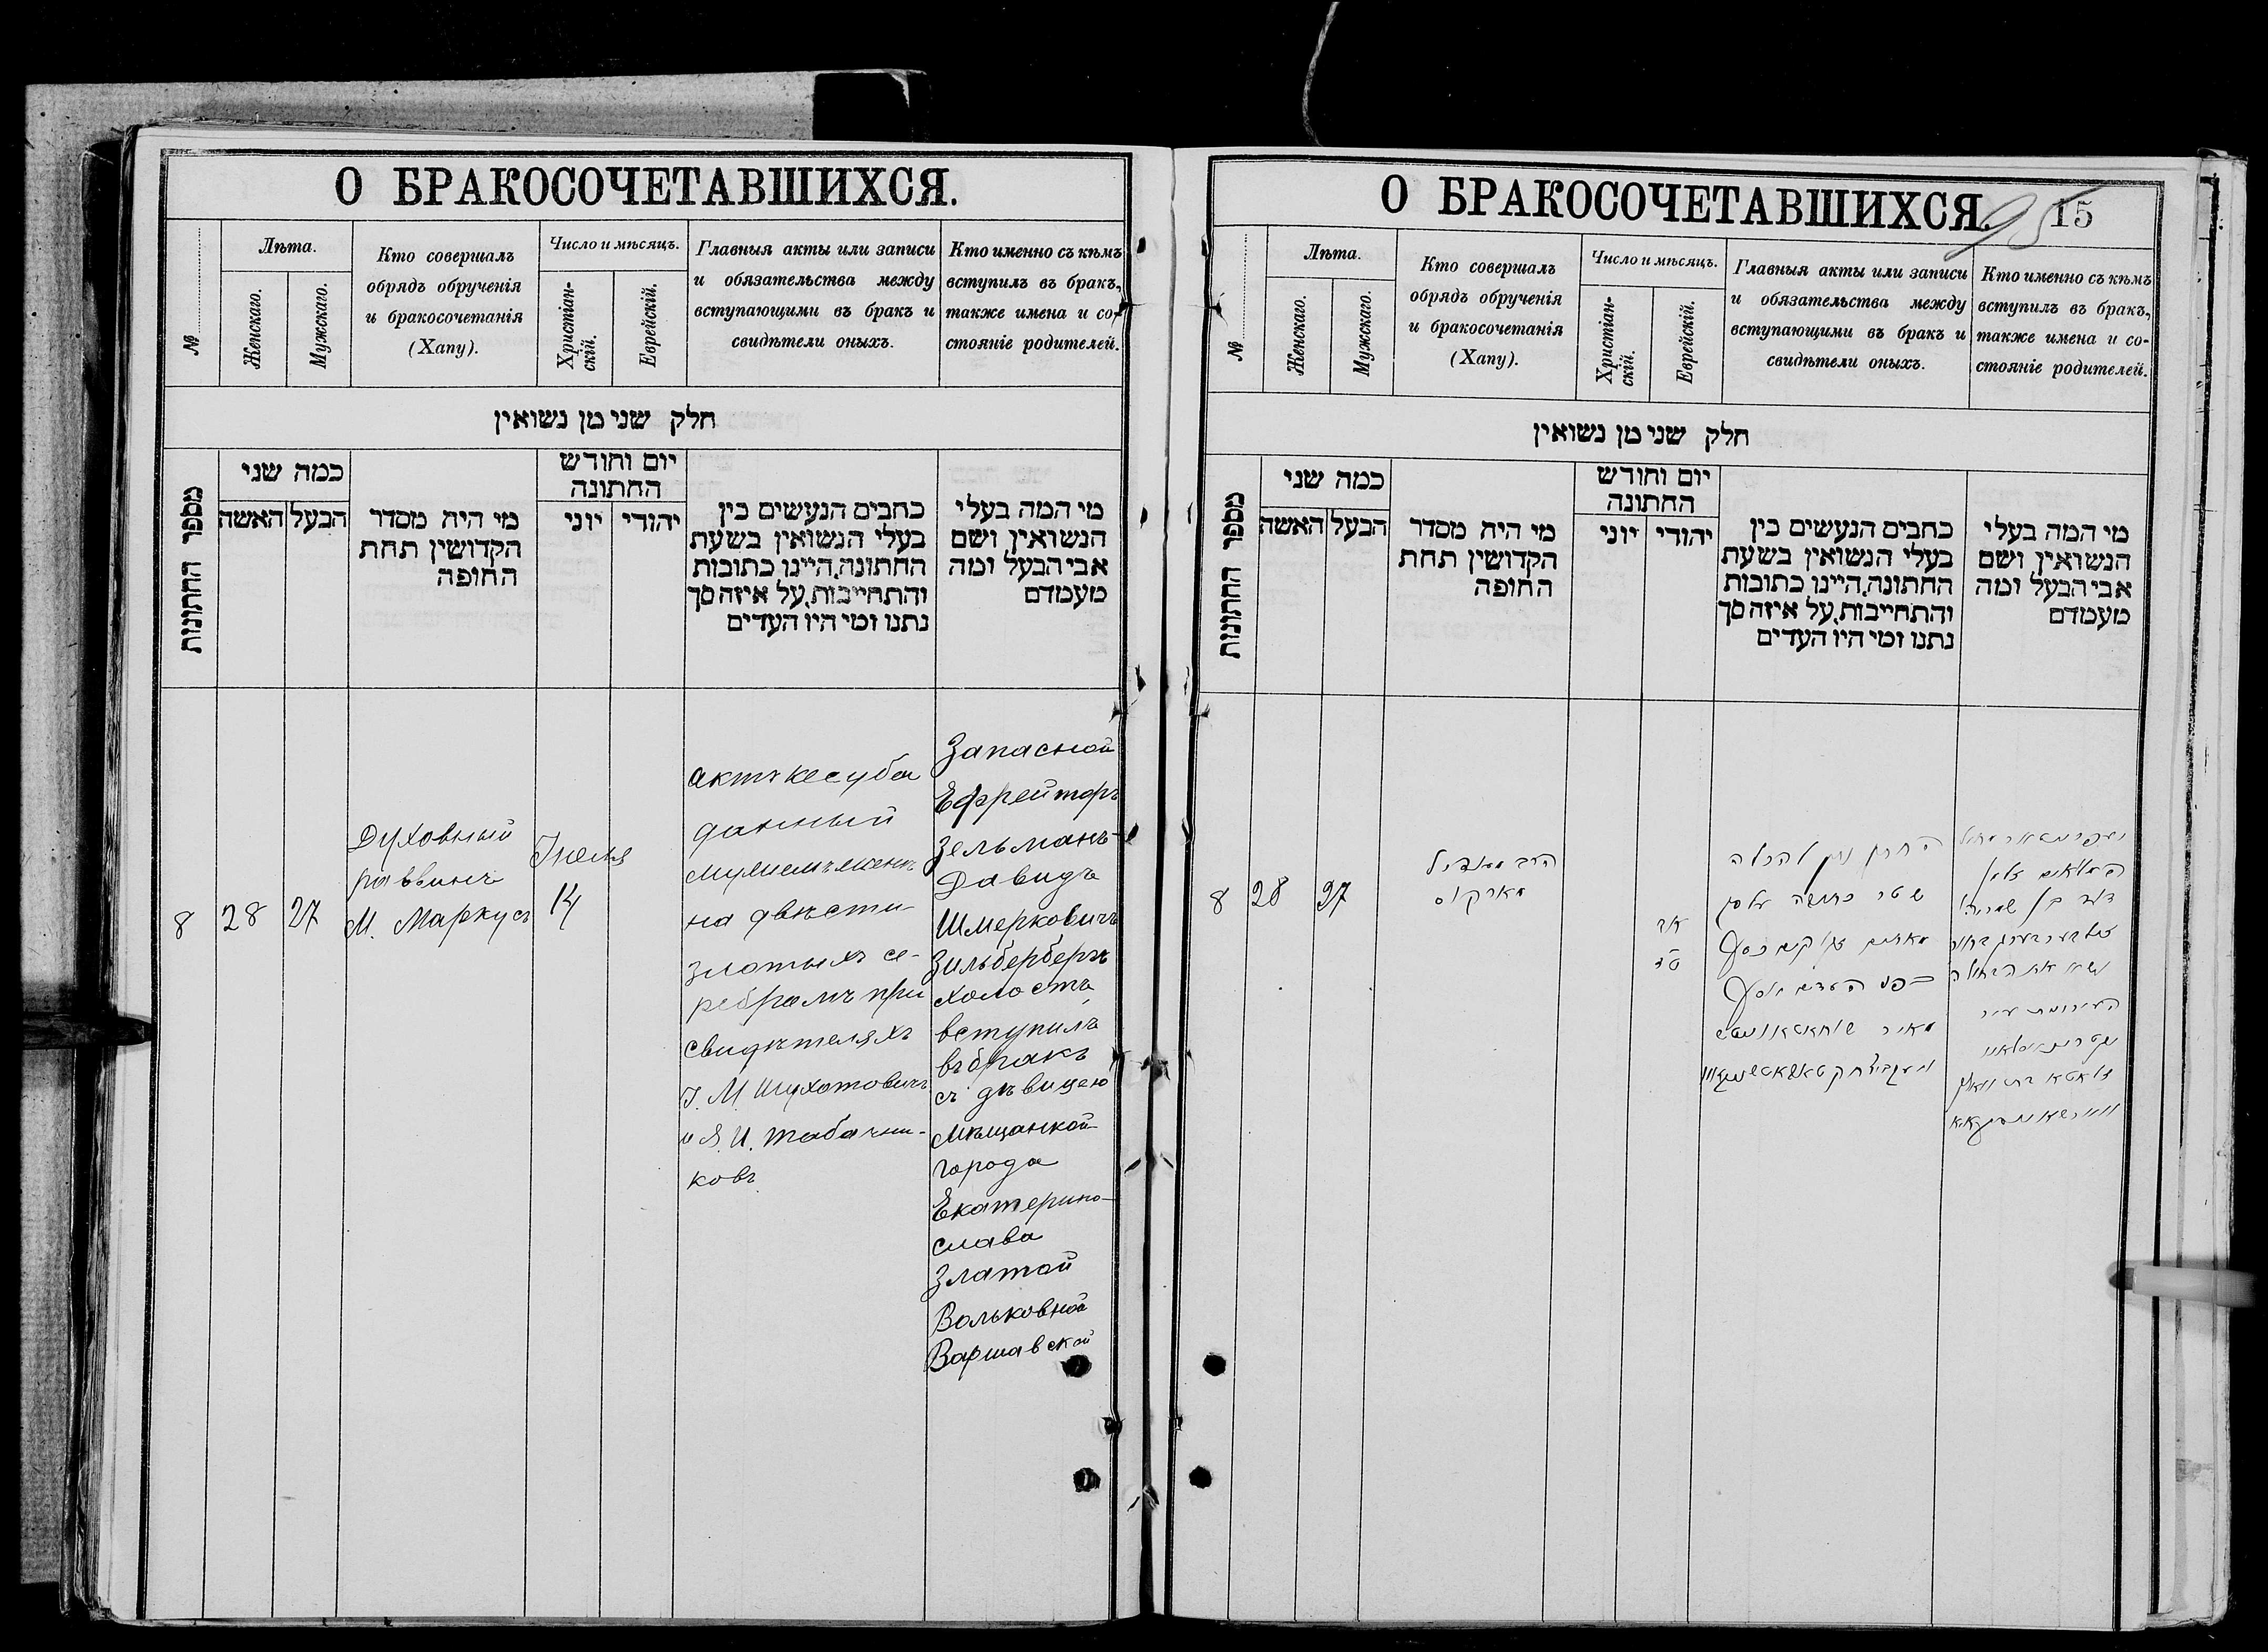 О БРАКОСОЧЕТАВШИХСЯ.
№
Лѣта.
Женскаго.
Мужскаго.
Кто совершалъ
обрядъ обрученія
и бракосочетанія
(Хапу).
Число и мѣсяцъ.
Христіан-
скій.
Еврейскій.
Главныя акты или записи
и обязательства между
вступающими въ бракъ и
свидѣтели оныхъ.
Кто именно съ кѣмъ
вступилъ въ бракъ,
также имена и со-
стояніе родителей.
חלק שני מן נשואין
מספר החתונות
כמה שני
האשה
הבעל
מי היה מסדר
הקדושין תחת
החופה
יום וחודש
החתונה
יוני
יהודי
כתבים הנעשים בין
בעלי הנשואין בשעת
החתונה, היינו כתובות
והתחייבות, על איזה סך
נתנו ומי היו העדים
מי המה בעלי
הנשואין ושם
אבי הבעל ומה
מעמדם
8
28
27
Духовный
раввинъ
М. Маркусъ
Іюля
14
актъ кесуба
данный
мужемъ женѣ
на двѣсти
златыхъ се-
ребромъ при
свидѣтеляхъ
І. М. Шухатовичъ
и Я. И. Табачни-
ковъ
Запасной
Ефрейторъ
Зельманъ-
Давидъ
Шмерковичъ
Зильбербергъ
холостъ
вступилъ
въ бракъ
съ дѣвицею
мѣщанкой
города
Екатерино-
слава
Златой
Вольковной
Варшавской
О БРАКОСОЧЕТАВШИХСЯ.
95
15
№
Лѣта.
Женскаго.
Мужскаго.
Кто совершалъ
обрядъ обрученія
и бракосочетанія
(Хапу).
Число и мѣсяцъ.
Христіан-
скій.
Еврейскій.
Главныя акты или записи
и обязательства между
вступающими въ бракъ и
свидѣтели оныхъ.
Кто именно съ кѣмъ
вступилъ въ бракъ,
также имена и со-
стояніе родителей.
חלק שני מן נשואין
מספר החתונות
כמה שני
האשה
הבעל
מי היה מסדר
הקדושין תחת
החופה
יום וחודש
החתונה
יוני
יהודי
כתבים הנעשים בין
בעלי הנשואין בשעת
החתונה, היינו כתובות
והתחייבות, על איזה סך
נתנו ומי היו העדים
מי המה בעלי
הנשואין ושם
אבי הבעל ומה
מעמדם
8
28
27
הרב מאנדיל
מארקוס
אב
החתן נתן להכלה
שטר כתובה על סך
מאתים זקוקים כסף
בפני העדים יוסף
מאיר
זלמן
דוד בן שמריהו
זילבערבערג בחור
נשא את הבתולה
העירונית מעיר
זלאטא בת וואלף
ווארשאווסקאיא